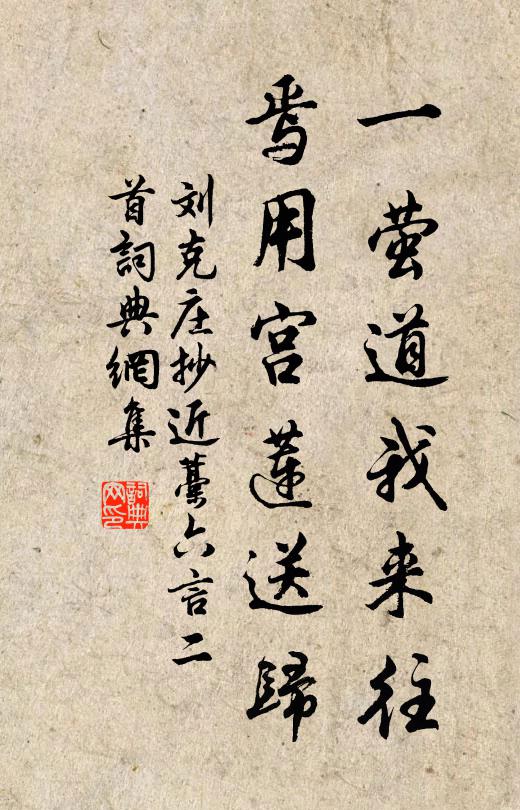 一萤道我来往
焉用宫莲送歸
刘克庄抄近藁六言二
首詞典網集
詞典网印